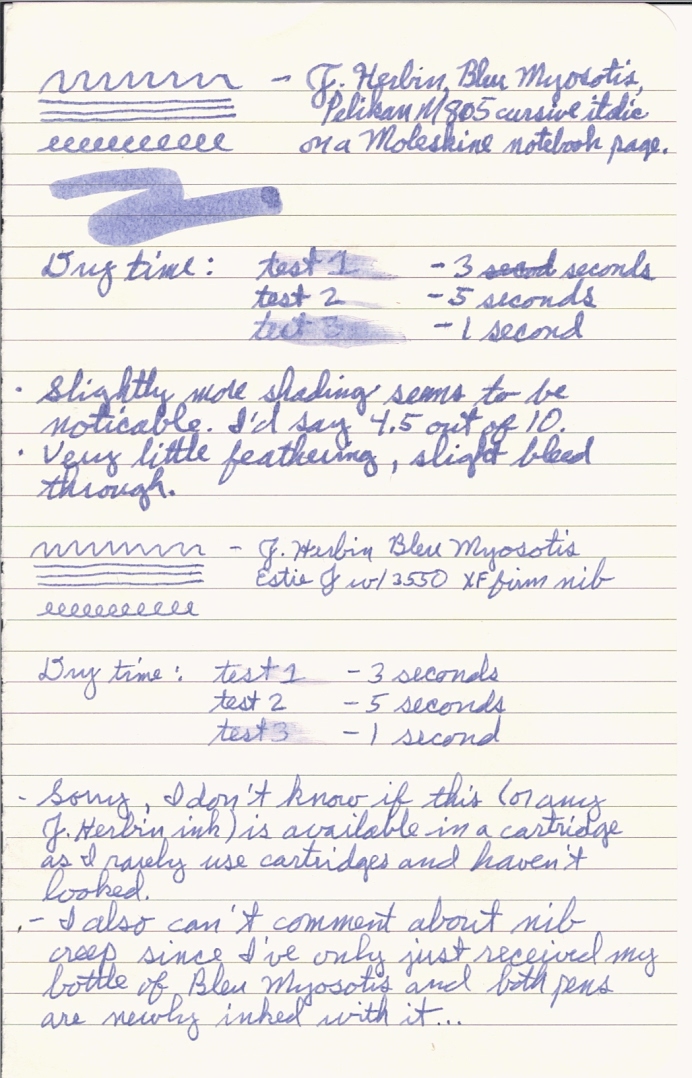 - J. Herbin, Bleu Myosotis,
Pelikan M805 cursive italic
on a Moleskine notebook page.
Dry time: test 1 - 3 secod seconds
test 2 - 5 seconds
test 3 - 1 second
· Slightly more shading seems to be
noticable. I'd say 4.5 out of 10.
· Very little feathering, slight bleed
through.
- J. Herbin Bleu Myosotis
Estie J w/ 3550 XF firm nib
Dry time: test 1 - 3 seconds
test 2 - 5 seconds
test 3 - 1 second
- Sorry, I don't know if this (or any
J. Herbin ink) is available in a cartridge
as I rarely use cartridges and haven't
looked.
- I also can't comment about nib
creep since I've only just received my
bottle of Bleu Myosotis and both pens
are newly inked with it...